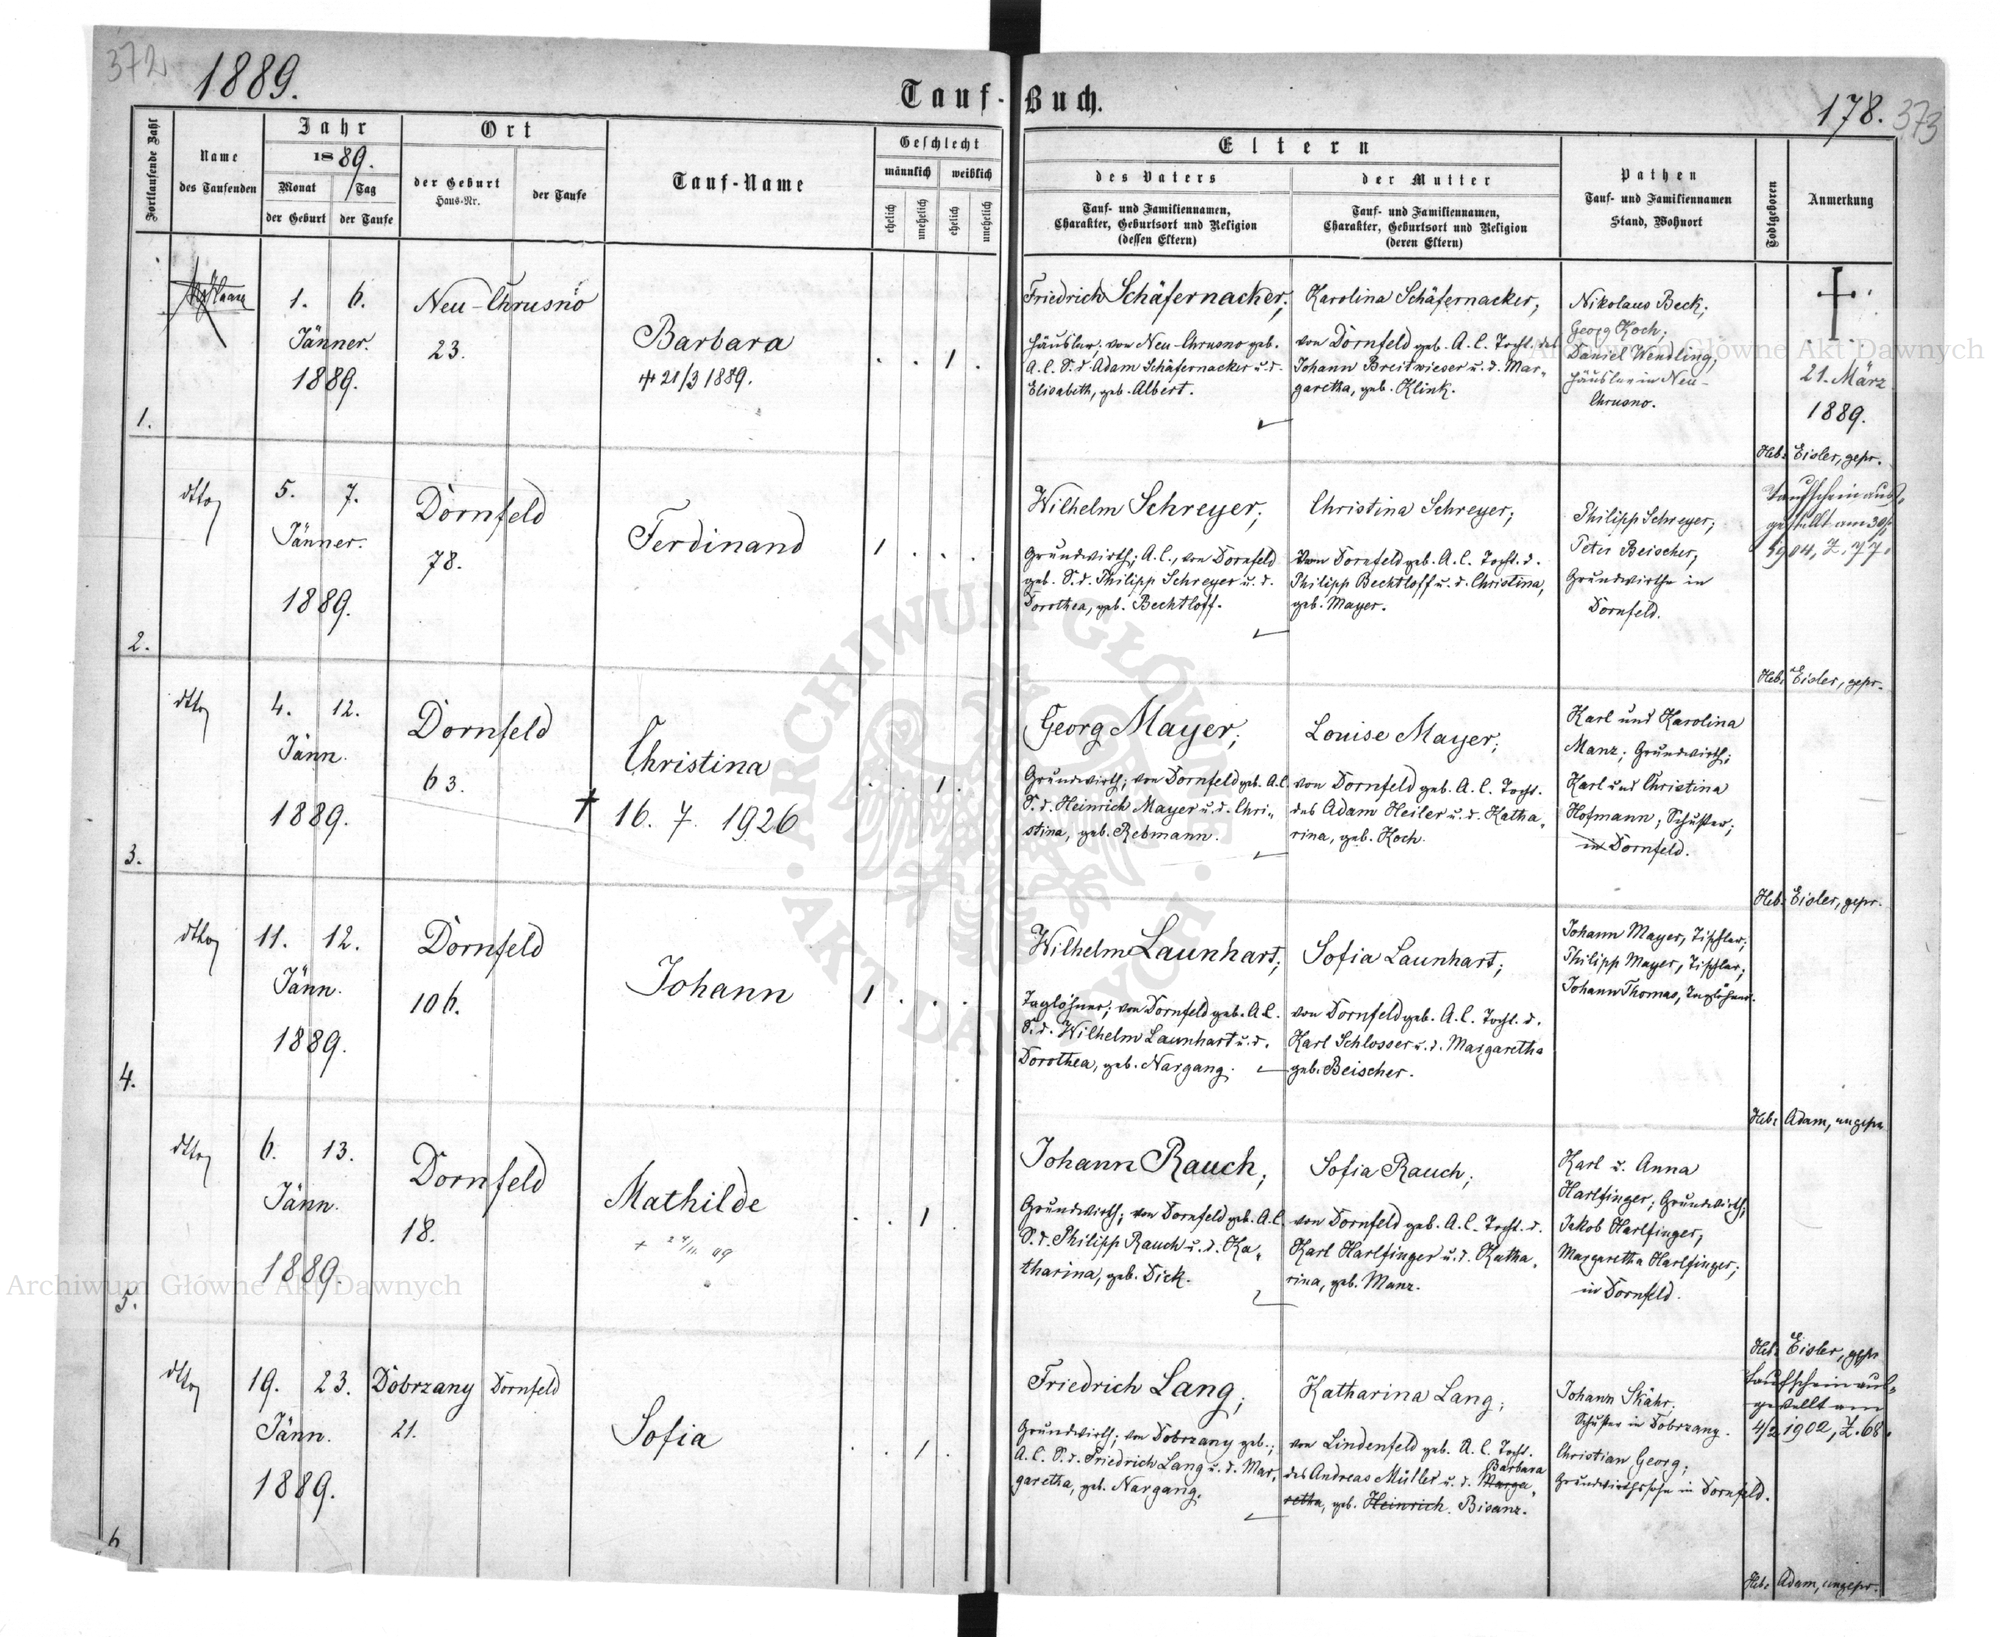 372
1889.
Tauf-Buch.
178. 373
Fortlaufende Zahl
Name
des Taufenden
Jahr
1889.
Monat
Tag
der Geburt
der Taufe
Ort
der Geburt
Haus-Nr.
der Taufe
Tauf-Name
Geschlecht
männlich
weiblich
ehelich
unehelich
ehelich
unehelich
Eltern
des Vaters
Tauf- und Familiennamen,
Charakter, Geburtsort und Religion
(dessen Eltern)
der Mutter
Tauf- und Familiennamen,
Charakter, Geburtsort und Religion
(deren Eltern)
Pathen
Tauf- und Familiennamen
Stand, Wohnort
Todtgeboren
Anmerkung
1.
1. 6.
Jänner.
1889.
Neu-Chrusno
23.
Barbara
+ 21/3 1889.
1
Friedrich Schäfernacker;
Häusler; von Neu-Chrusno geb.
A. C. S. d. Adam Schäfernacker u. d.
Elisabeth, geb. Albert.
Karolina Schäfernacker;
von Dornfeld geb. A. C. Tocht. des
Johann Breitwieser u. d. Mar-
garetha, geb. Klink.
Nikolaus Beck;
Georg Koch;
Daniel Wendling;
Häusler in Neu-
Chrusno.
21. März
1889.
Heb: Eisler, gepr.
2.
dtto
5. 7.
Jänner.
1889.
Dornfeld
78.
Ferdinand
1
Wilhelm Schreyer;
Grundwirth; A. C., von Dornfeld
geb. S. d. Philipp Schreyer u. d.
Dorothea, geb. Bechtloff.
Christina Schreyer;
von Dornfeld geb. A. C. Tocht. d.
Philipp Bechtloff u. d. Christina,
geb. Mayer.
Philipp Schreyer;
Peter Beischer;
Grundwirthe in
Dornfeld.
Taufschein aus-
gestellt am
1904, Z. 77.
Heb: Eisler, gepr.
3.
dtto
4. 12.
Jänn.
1889.
Dornfeld
63.
Christina
† 16. 7. 1926
1
Georg Mayer;
Grundwirth; von Dornfeld geb. A. C.
S. d. Heinrich Mayer u. d. Chri-
stina, geb. Rebmann.
Louise Mayer;
von Dornfeld geb. A. C. Tocht.
des Adam Heiler u. d. Katha-
rina, geb. Koch.
Karl und Karolina
Manz; Grundwirth;
Karl und Christina
Hofmann; Schuster;
in Dornfeld.
Heb: Eisler, gepr.
4.
dtto
11. 12.
Jänn.
1889.
Dornfeld
106.
Johann
1
Wilhelm Launhart;
Taglöhner; von Dornfeld geb. A. C.
S. d. Wilhelm Launhart u. d.
Dorothea, geb. Nargang.
Sofia Launhart;
von Dornfeld geb. A. C. Tocht. d.
Karl Schlosser u. d. Margaretha
geb. Beischer.
Johann Mayer, Tischler;
Philipp Mayer, Tischler;
Johann Thomas, Taglöhner.
Heb: Adam, ungepr.
5.
dtto
6. 13.
Jänn.
1889.
Dornfeld
18.
Mathilde
1
Johann Rauch;
Grundwirth; von Dornfeld geb. A. C.
S. d. Philipp Rauch u. d. Ka-
tharina, geb. Dick.
Sofia Rauch;
von Dornfeld geb. A. C. Tocht. d.
Karl Harlfinger u. d. Katha-
rina, geb. Manz.
Karl u. Anna
Harlfinger; Grundwirth;
Jakob Harlfinger;
Margaretha Harlfinger;
in Dornfeld.
Heb: Eisler, gepr
6.
dtto
19. 23.
Jänn.
1889.
Dobrzany
21.
Dornfeld
Sofia
1
Friedrich Lang;
Grundwirth; von Dobrzany geb.;
A. C. S. d. Friedrich Lang u. d. Mar-
garetha, geb. Nargang.
Katharina Lang;
von Lindenfeld geb. A. C. Tocht.
Barbara
des Andreas Müller u. d. Marga-
retha, geb. Heinrich. Bisanz.
Johann Skähr;
Schuster in Dobrzany.
Christian Georg;
Grundwirthssohn in Dornfeld.
Taufschein aus-
gestellt am
4/2 1902, Z. 68.
Heb: Adam, ungepr.
Archiwum Główne Akt Dawnych
ARCHIWUM GŁÓWNE · AKT DAWNYCH ·
Archiwum Główne Akt Dawnych